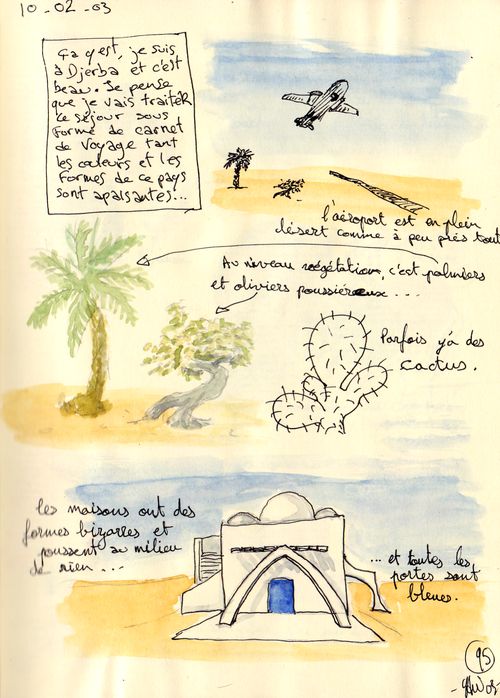 10-02-03
Ça y est, je suis
à Djerba et c'est
beau. Je pense
que je vais traiter
ce séjour sous
forme de carnet
de voyage tant
les couleurs et les
formes de ce pays
sont apaisantes...
l'aéroport est en plein
désert comme à peu près tout
Au niveau végétation, c'est palmiers
et oliviers poussiéreux....
Parfois y'a des
cactus.
les maisons ont des
formes bizarres et
poussent au milieu
de rien...
...et toutes les
portes sont
bleues.
95